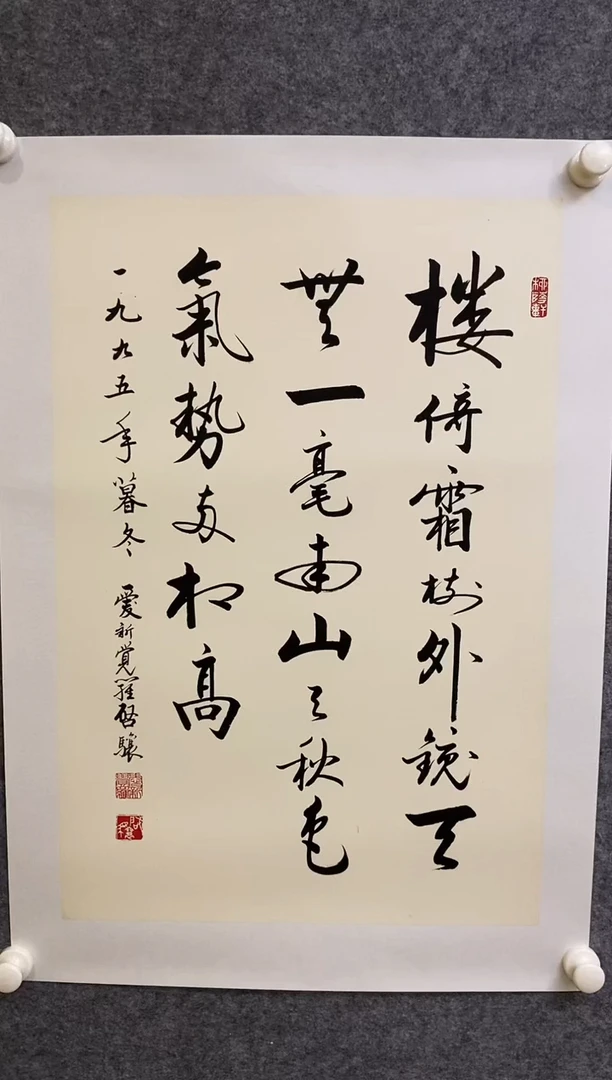 楼倚霜树外鏡天
無一毫南山与秋色
氣勢两相高
一九九五年暮冬 愛新覺羅啟驤